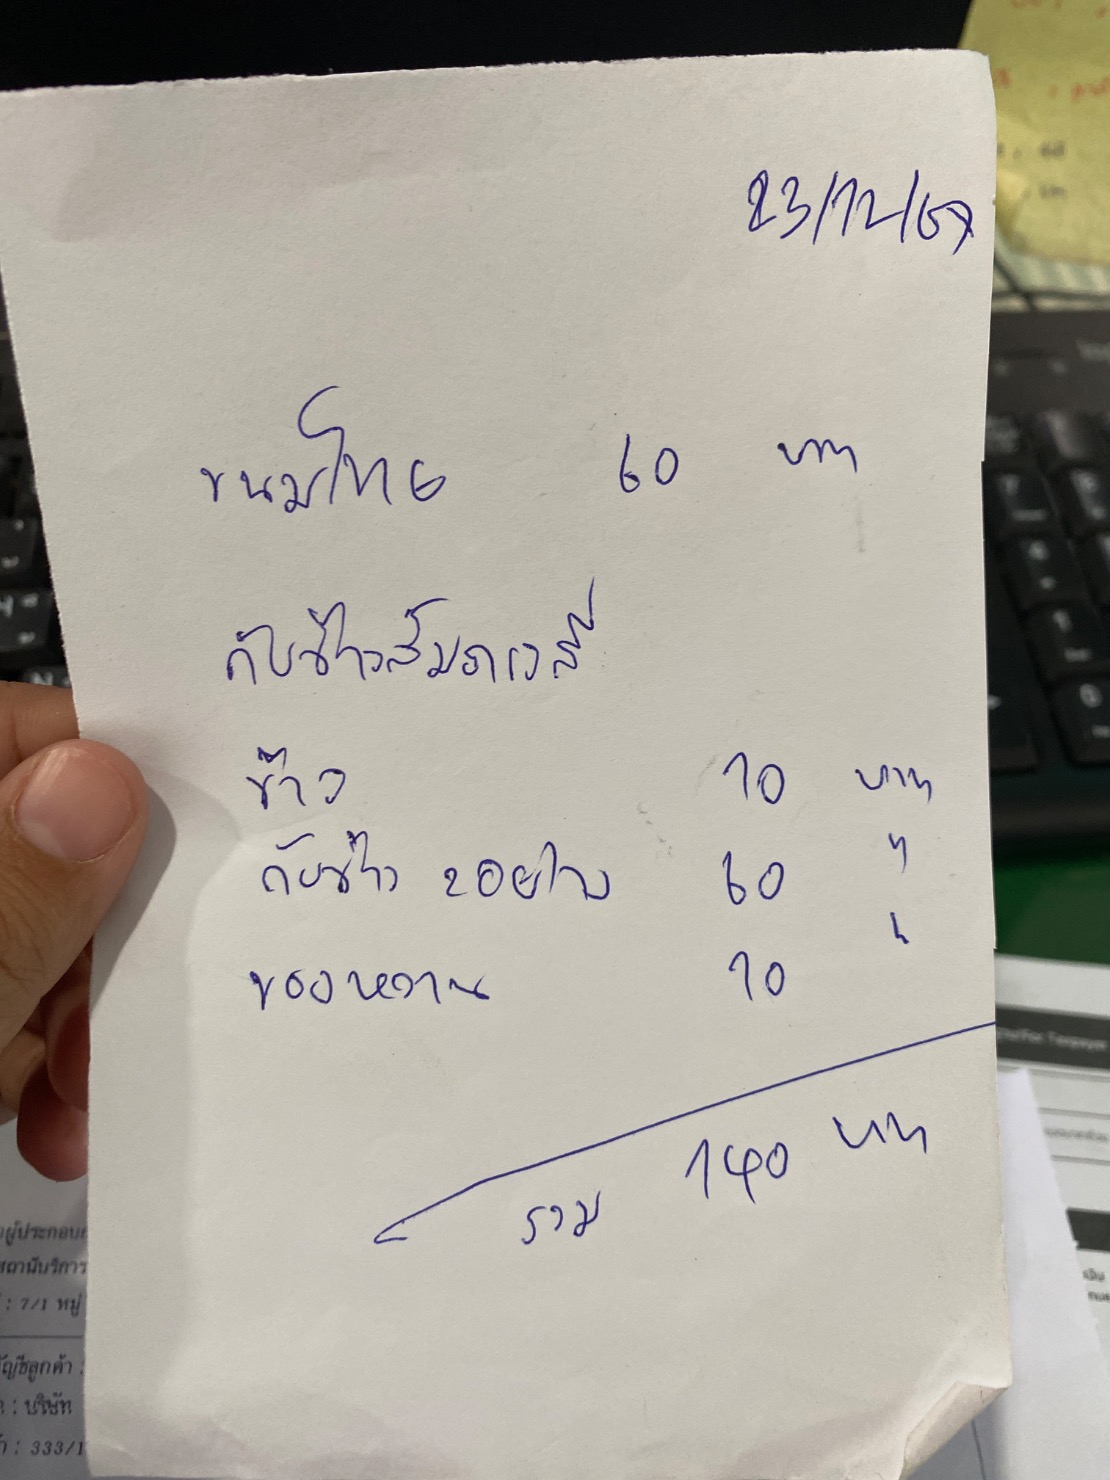 23/12/67
ขนมไทย 60 บาท
กับข้าวสัมภเวสี
ข้าว 10 บาท
กับข้าว 2 อย่าง 60 "
ของหวาน 10 "
รวม 140 บาท
ผู้ประกอบ
สถานีบริการ
: 7/1 หมู่
บัญชีลูกค้า :
: บริษัท
: 333/1